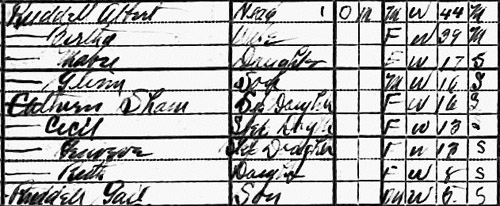 Ruddell Albert Head 1 O M M W 44 M
— Bertha Wife F W 39 M
— Daughter F W 17 S
— Glenn Son M W 16 S
Step Daughter F W 16 S
— Cecil Step Daughter F W 13
— Step Daughter F W 13 S
— Ruth Daughter F W 8 S
Ruddell Gail Son M W 6 S